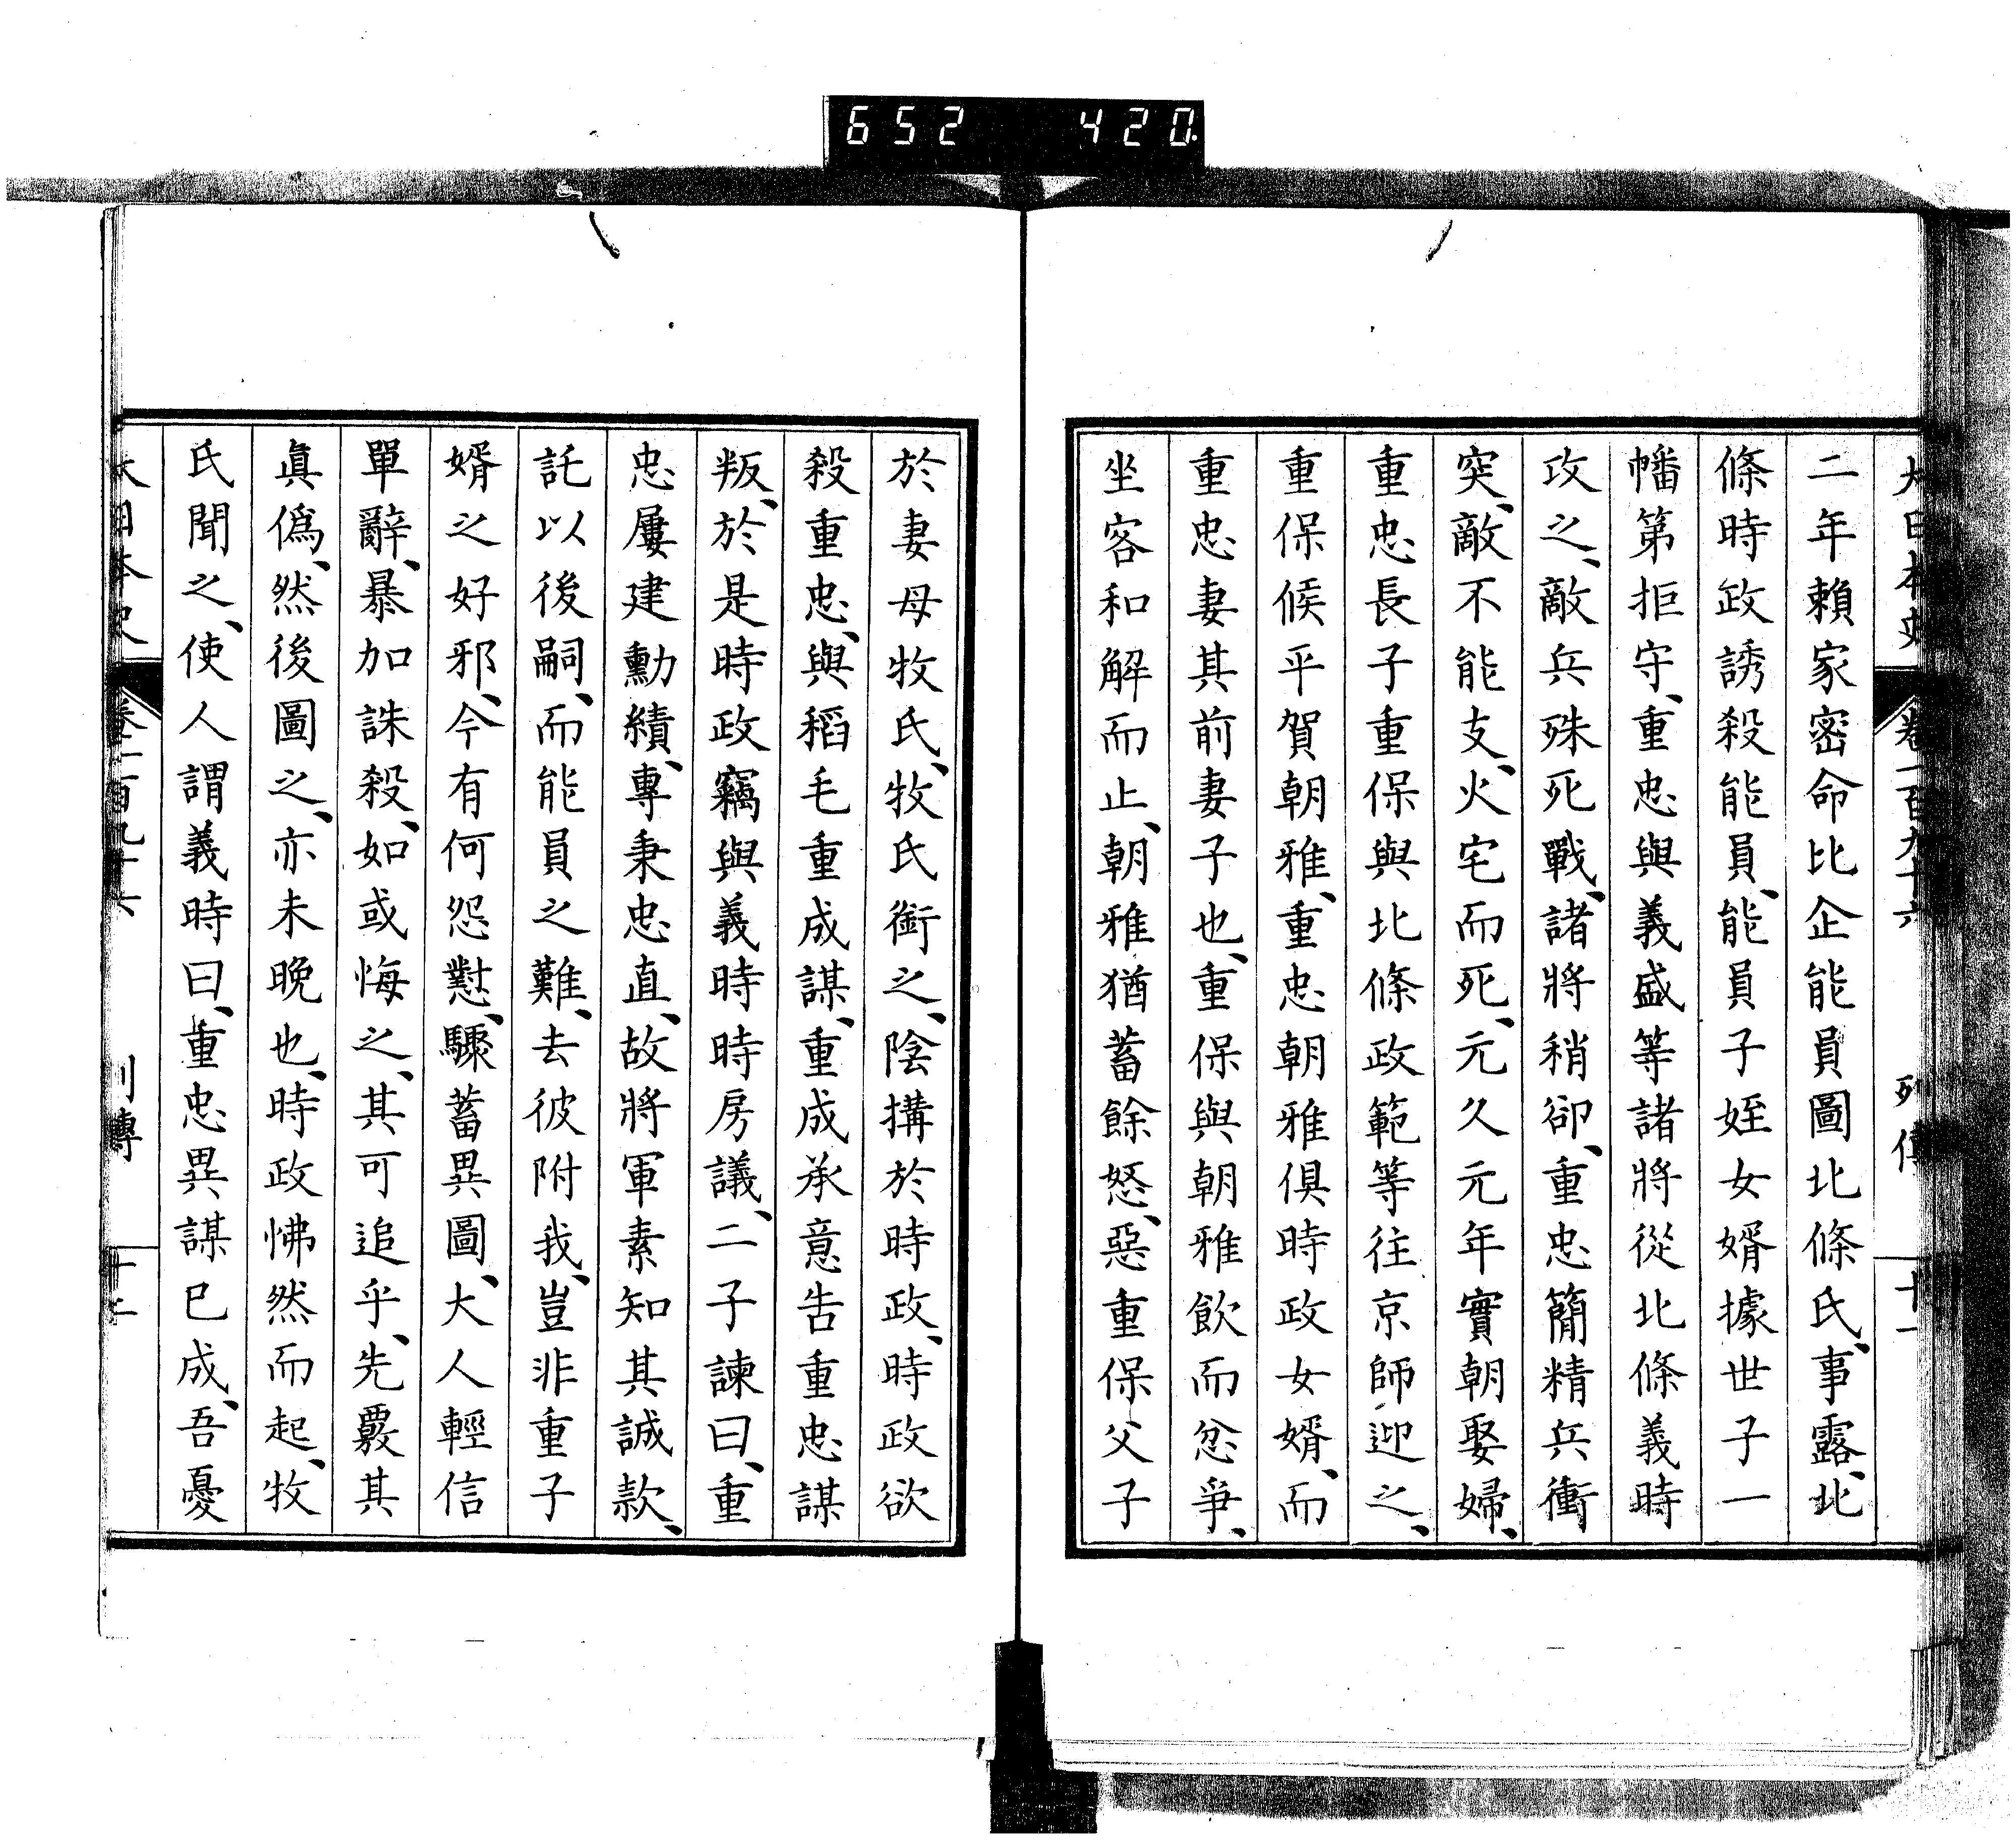 652 420
大日本史 卷一百九十六 列傳 十一
二年賴家密命比企能員圖北條氏、事露、北
條時政誘殺能員、能員子姪女婿據世子一
幡第拒守、重忠與義盛等諸將從北條義時
攻之、敵兵殊死戰、諸將稍卻、重忠簡精兵衝
突、敵不能支、火宅而死、元久元年實朝娶婦、
重忠長子重保與北條政範等往京師迎之、
重保候平賀朝雅、重忠朝雅俱時政女婿、而
重忠妻其前妻子也、重保與朝雅飲而忿爭、
坐客和解而止、朝雅猶蓄餘怒、惡重保父子
於妻母牧氏、牧氏銜之、陰搆於時政、時政欲
殺重忠、與稻毛重成謀、重成承意告重忠謀
叛、於是時政竊與義時時房議、二子諫曰、重
忠屢建勳績、專秉忠直、故將軍素知其誠款、
託以後嗣、而能員之難、去彼附我、豈非重子
婿之好邪、今有何怨懟、驟蓄異圖、大人輕信
單辭、暴加誅殺、如或悔之、其可追乎、先覈其
眞僞、然後圖之、亦未晚也、時政怫然而起、牧
氏聞之、使人謂義時曰、重忠異謀已成、吾憂
大日本史 卷一百九十六 列傳 十二